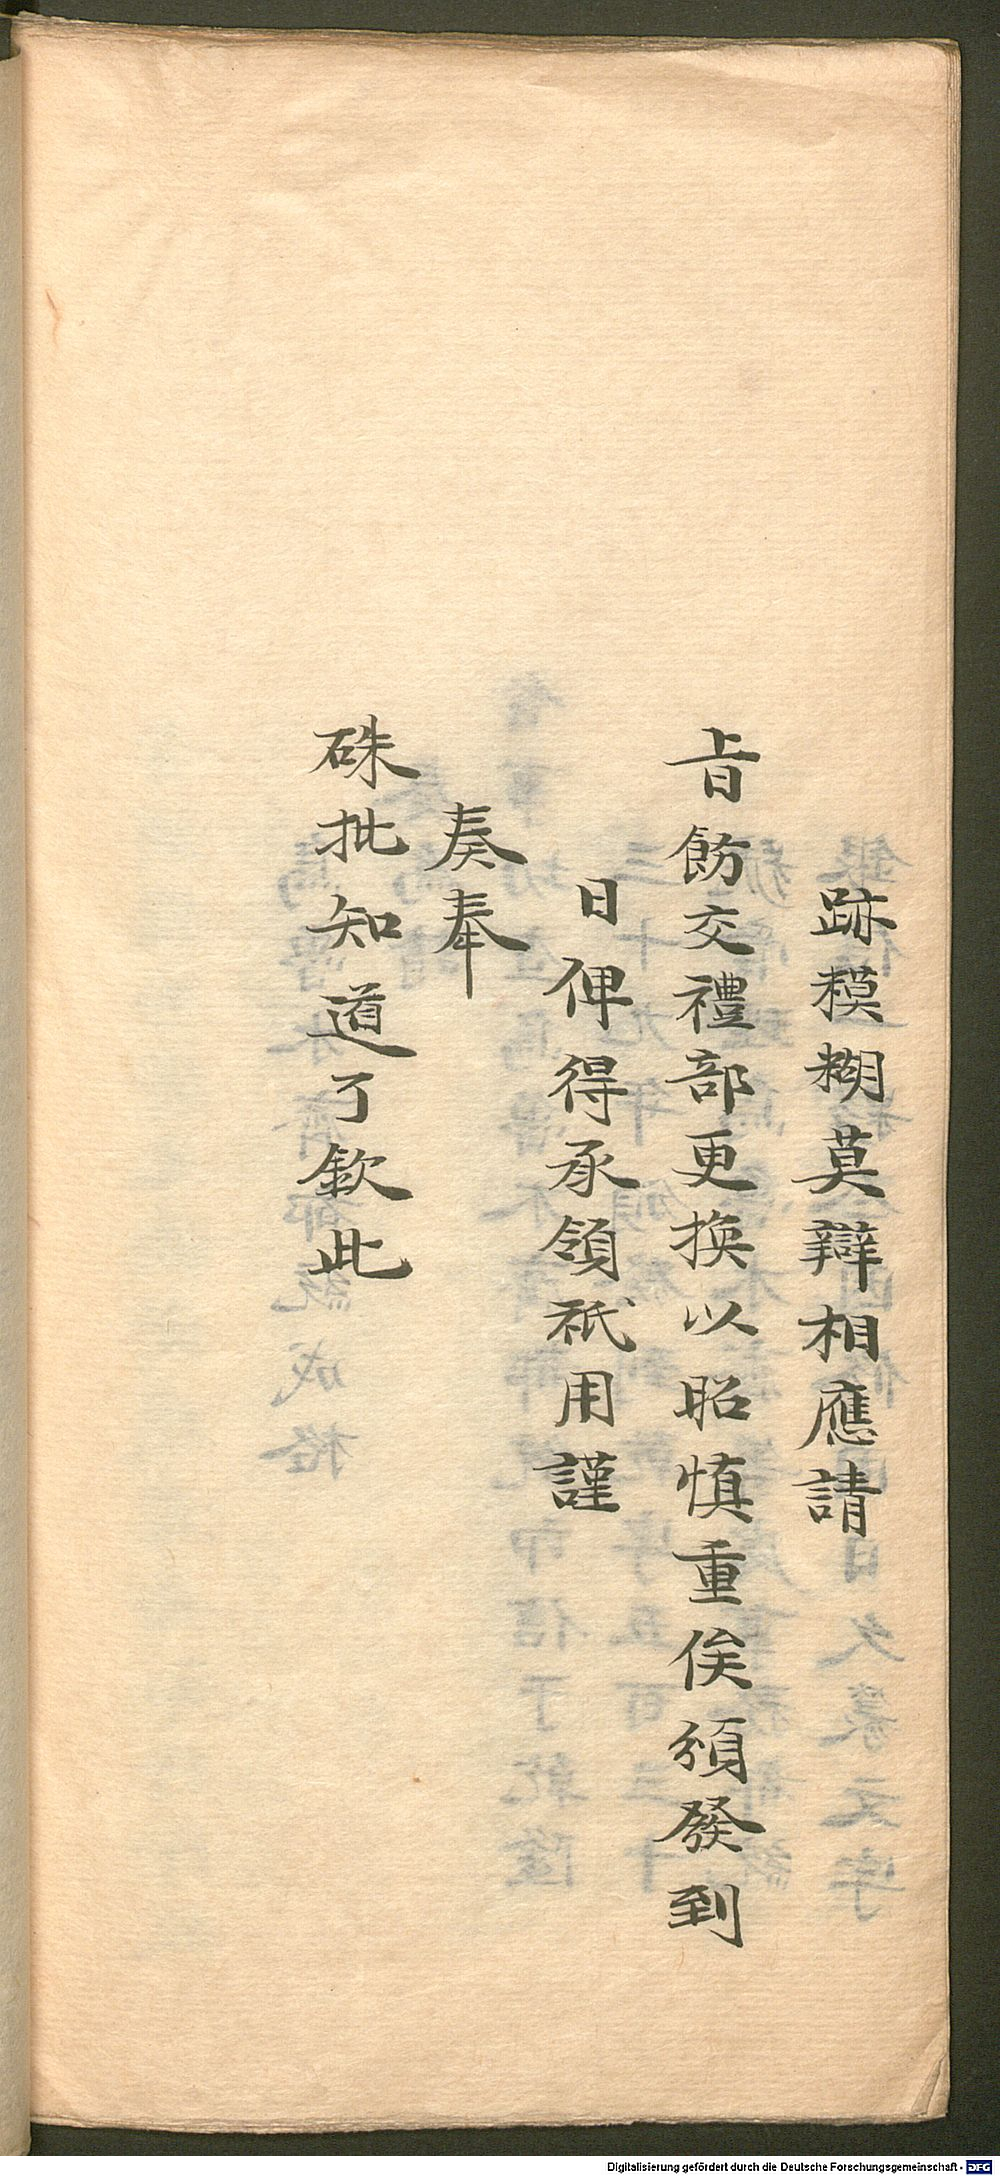 跡糢糊莫辯相應請
旨飭交禮部更換以昭慎重俟頒發到
日俾得承領祇用謹
奏奉
硃批知道了欽此
Digitalisierung gefördert durch die Deutsche Forschungsgemeinschaft - DFG